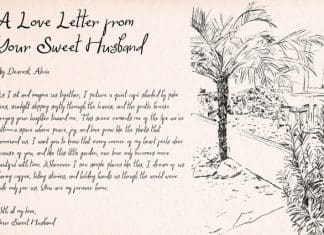 A Love Letter from
Your Sweet Husband
My Dearest Alvin
As I sit and imagine us together, I picture a quiet café shaded by palm
trees, sunlight slipping softly through the leaves, and the gentle breeze
carrying your laughter toward me. This scene reminds me of the life we've
built—a space where peace, joy, and love grow like the plants that
surround us. I want you to know that every corner of my heart feels alive
because of you, and like this little garden, our love only becomes more
beautiful with time. Whenever I see simple places like this, I dream of us
sharing coffee, telling stories, and holding hands as though the world were
made only for us. You are my forever home.
With all my love,
Your Sweet Husband